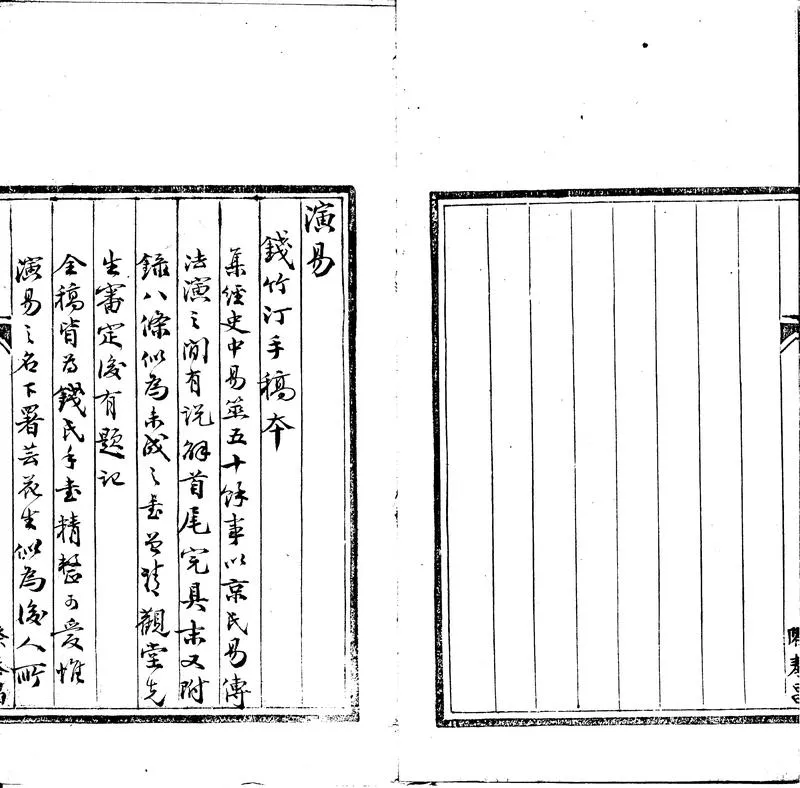 演易
錢竹汀手稿本
集經史中易筮五十餘事以京氏易傳
法演之間有説解首尾完具末又附
錄八條似為未成之書曾請觀堂先
生審定後有題記
全稿皆為錢氏手書精整可愛惟
演易之名下署芸花生似為後人所